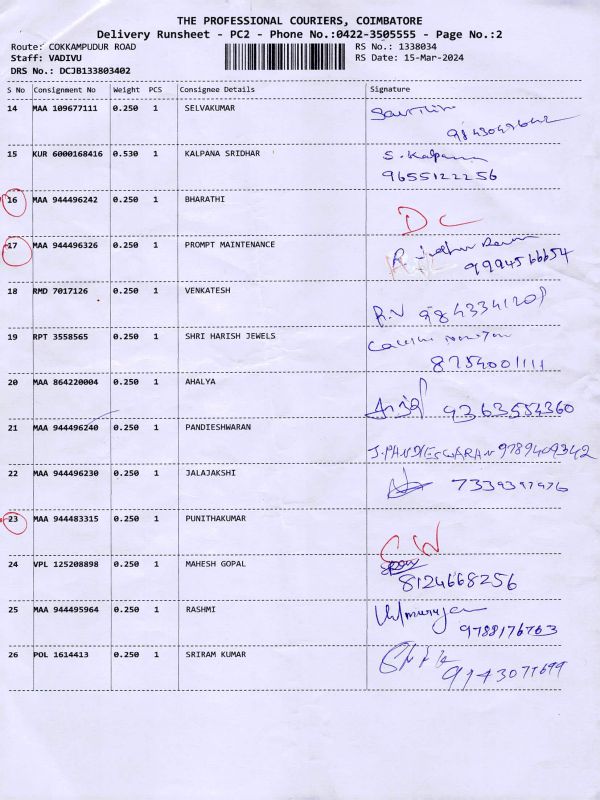 THE PROFESSIONAL COURIERS, COIMBATORE
Delivery Runsheet - PC2 - Phone No.:0422-3505555 - Page No.:2
Route: COKKAMPUDUR ROAD RS No.: 1338034
Staff: VADIVU RS Date: 15-Mar-2024
DRS No.: DCJB133803402
S No Consignment No Weight PCS Consignee Details Signature
14 MAA 109677111 0.250 1 SELVAKUMAR
15 KUR 6000168416 0.530 1 KALPANA SRIDHAR S. Kalpana
9655122256
16 MAA 944496242 0.250 1 BHARATHI DC
17 MAA 944496326 0.250 1 PROMPT MAINTENANCE
9994566654
18 RMD 7017126 0.250 1 VENKATESH R.V 9843341208
19 RPT 3558565 0.250 1 SHRI HARISH JEWELS
8754001111
20 MAA 864220004 0.250 1 AHALYA 9363554360
21 MAA 944496240 0.250 1 PANDIESHWARAN J.PANDIESWARAN 9789409342
22 MAA 944496230 0.250 1 JALAJAKSHI 7339397976
23 MAA 944483315 0.250 1 PUNITHAKUMAR
24 VPL 125208898 0.250 1 MAHESH GOPAL
8124668256
25 MAA 944495964 0.250 1 RASHMI
9788176763
26 POL 1614413 0.250 1 SRIRAM KUMAR